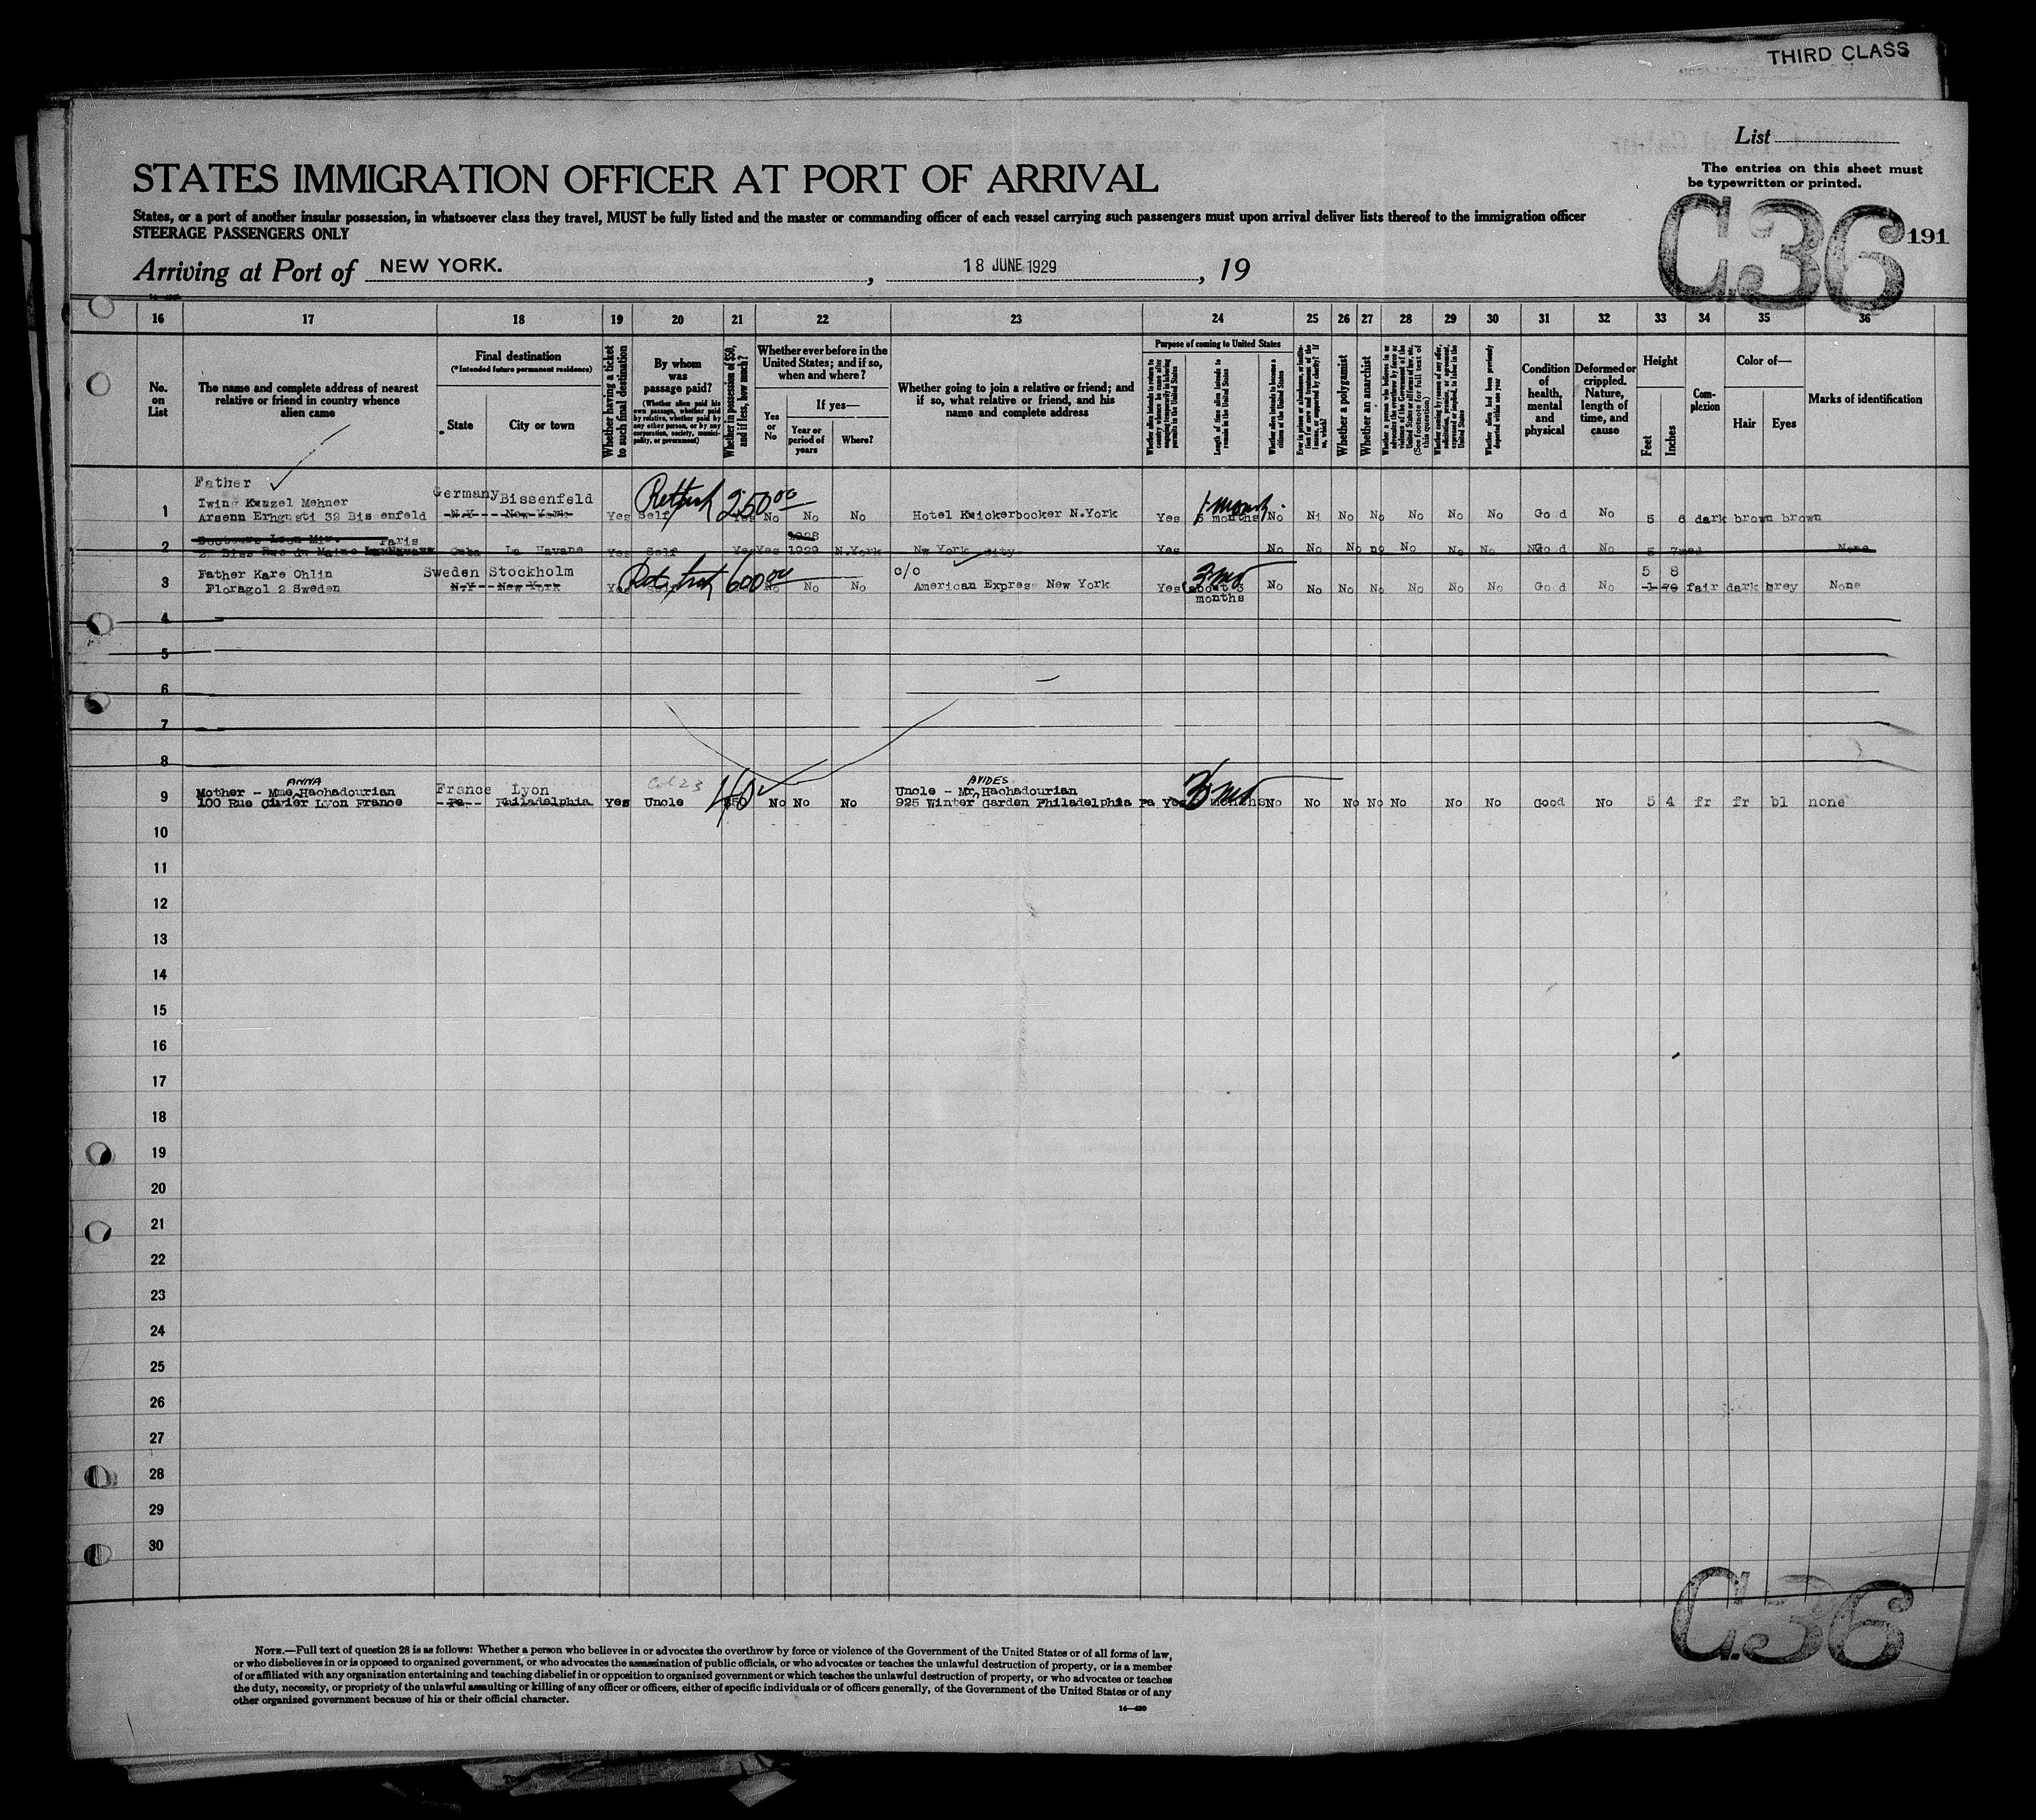 THIRD CLASS
List
The entries on this sheet must
be typewritten or printed.
STATES IMMIGRATION OFFICER AT PORT OF ARRIVAL
States, or a port of another insular possession, in whatsoever class they travel, MUST be fully listed and the master or commanding officer of each vessel carrying such passengers must upon arrival deliver lists thereof to the immigration officer
STEERAGE PASSENGERS ONLY
C.36
191
Arriving at Port of NEW YORK. , 18 JUNE 1929 , 19
16 17 18 19 20 21 22 23 24 25 26 27 28 29 30 31 32 33 34 35 36
No. on List
The name and complete address of nearest relative or friend in country whence alien came
Final destination
(*Intended future permanent residence)
State
City or town
Whether having a ticket to such final destination
By whom was passage paid?
(Whether alien paid his own passage, whether paid by relative, whether paid by any other person, or by any corporation, society, municipality, or government)
Whether in possession of $50, and if less, how much?
Whether ever before in the United States; and if so, when and where?
Yes or No
If yes—
Year or period of years
Where?
Whether going to join a relative or friend; and if so, what relative or friend, and his name and complete address
Purpose of coming to United States
Length of time alien intends to remain in the United States
Whether alien intends to become a citizen of the United States
Whether a polygamist
Whether an anarchist
Condition of health, mental and physical
Deformed or crippled. Nature, length of time, and cause
Height
Feet
Inches
Complexion
Color of—
Hair
Eyes
Marks of identification
Father
Germany Bissenfeld
1 Mehner
32 N.Y New York Yes Self 250 00 Yes No No No Hotel Knickerbocker N.York Yes 1 month months No Ni No No No No No Good No 5 6 dark brown brown
Paris 1928
2 Cuba La Havane Yes Self Yes Yes 1929 N.York New York City Yes No No No no No No No Good No 5 7 med None
Father Kare Ohlin Sweden Stockholm c/o 5 8
3 Floragol 2 Sweden N.Y New York Yes Self 600 00 No No No American Express New York Yes 3 mo about 3 months No No No No No No No Good No fair dark grey None
4
5
6
7
8
ANNA Col 23 AVIDES
Mother - Mme Hachadourian France Lyon Uncle - Mr, Hachadourian
9 100 Rue Cuvier Lyon France Pa Philadelphia Yes Uncle 40 $50 No No No 925 Winter Garden Philadelphia Pa Yes 3 mo months No No No No No No No Good No 5 4 fr fr bl none
10
11
12
13
14
15
16
17
18
19
20
21
22
23
24
25
26
27
28
29
30
C.36
NOTE.—Full text of question 28 is as follows: Whether a person who believes in or advocates the overthrow by force or violence of the Government of the United States or of all forms of law,
or who disbelieves in or is opposed to organized government, or who advocates the assassination of public officials, or who advocates or teaches the unlawful destruction of property, or is a member
of or affiliated with any organization entertaining and teaching disbelief in or opposition to organized government or which teaches the unlawful destruction of property, or who advocates or teaches
the duty, necessity, or propriety of the unlawful assaulting or killing of any officer or officers, either of specific individuals or of officers generally, of the Government of the United States or of any
other organized government because of his or their official character.
14—430